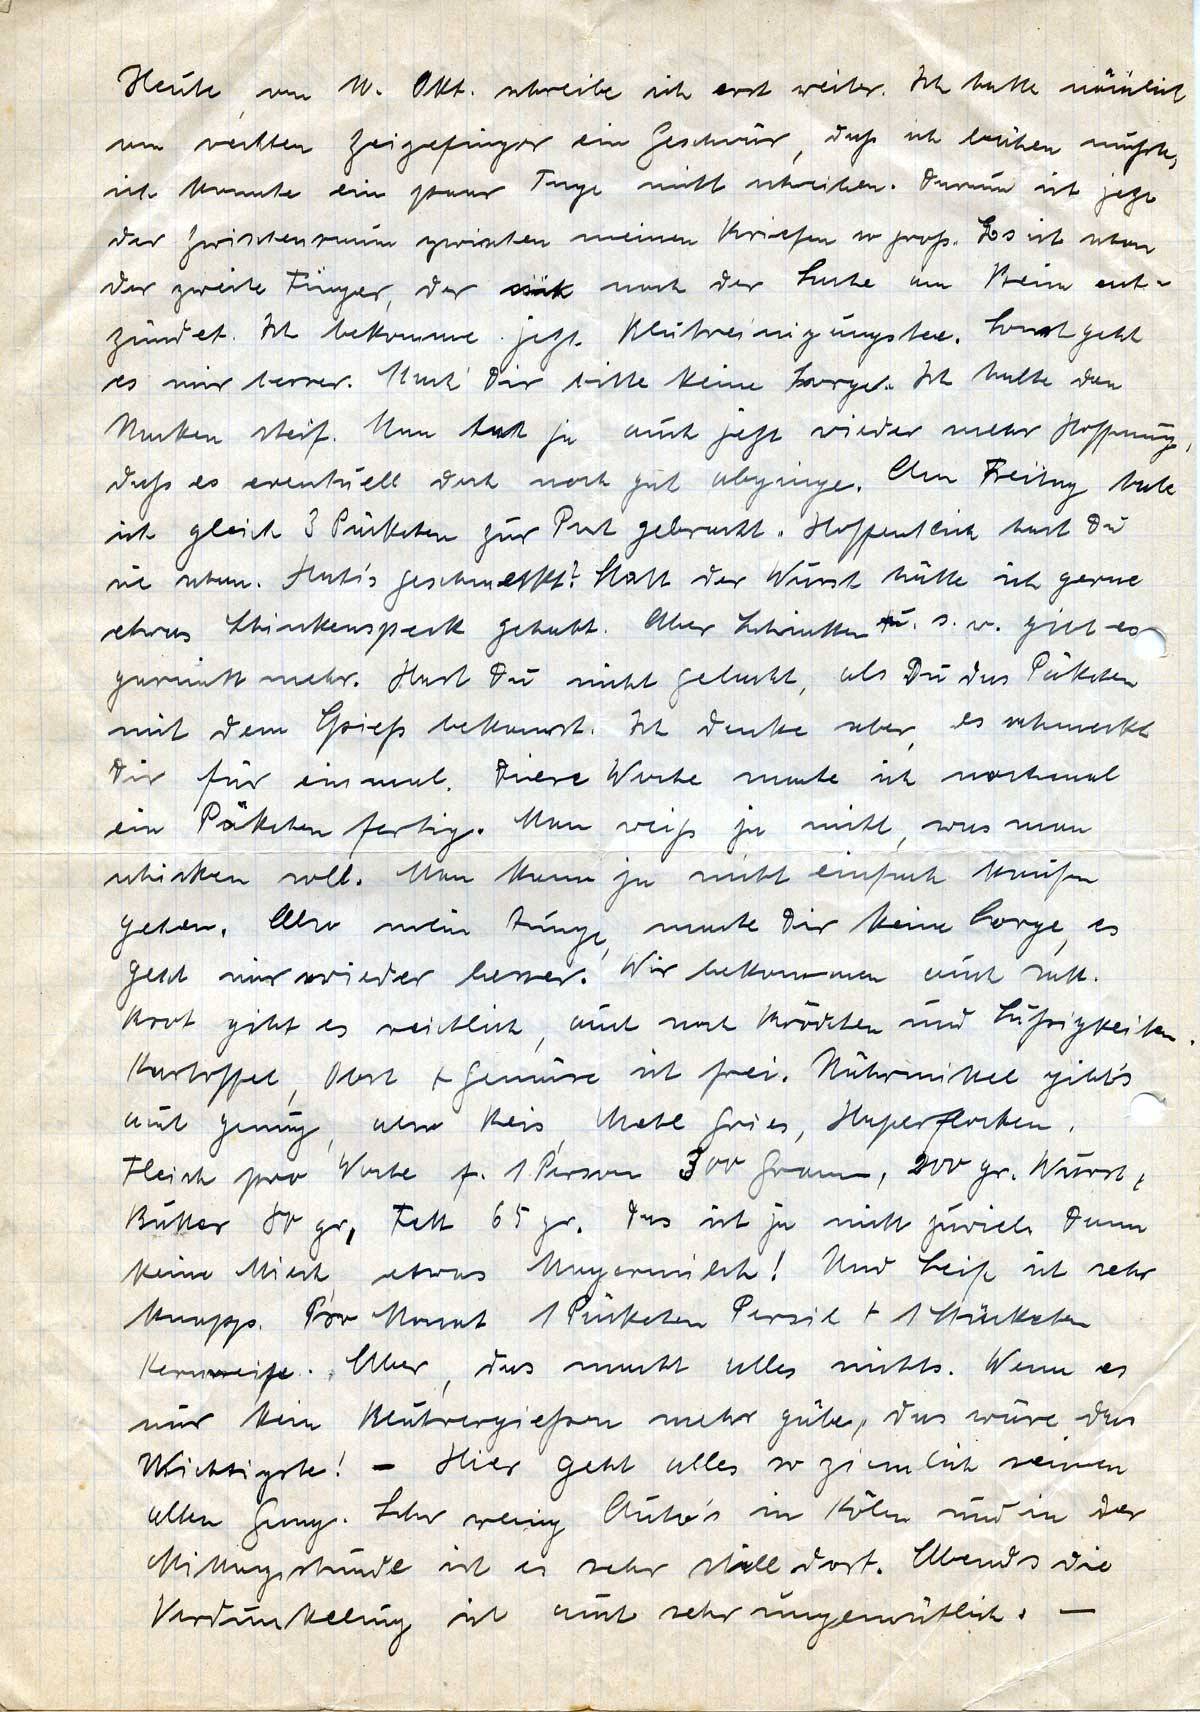 Heute, am 10. Okt. schreibe ich erst weiter. Ich hatte nämlich
am rechten Zeigefinger ein Geschwür, daß ich baden mußte,
ich konnte ein paar Tage nicht schreiben. Darum ist jetzt
der Zwischenraum zwischen meinen Briefen so groß. Es ist schon
der zweite Finger, der nach der Sache am Bein ent-
zündet. Ich bekomme jetzt Blutreinigungstee. Sonst geht
es mir besser. Mach' Dir bitte keine Sorge. Ich halte den
Nacken steif. Man hat ja auch jetzt wieder mehr Hoffnung,
daß es eventuell doch noch gut abginge. Am Freitag habe
ich gleich 3 Päckchen zur Post gebracht. Hoffentlich hast Du
sie schon. Hat's geschmeckt? Statt der Wurst hätte ich gerne
etwas Schinkenspeck gehabt. Aber Schinken u. s. w. gibt es
garnicht mehr. Hast Du nicht gelacht, als Du das Päkchen
mit dem Grieß bekamst. Ich denke aber, es schmeckt
Dir für einmal. Diese Woche mache ich nochmal
ein Päkchen fertig. Man weiß ja nicht, was man
schicken soll. Man kann ja nicht einfach kaufen
gehen. Also mein Junge, mache Dir keine Sorge, es
geht mir wieder besser. Wir bekommen auch satt.
Brot gibt es reichlich, auch noch Brödchen und Süßigkeiten.
Kartoffel, Obst + Gemüse ist frei. Nährmittel gibt's
auch genug, also Reis, Mehl Gries, Haferflocken.
Fleich pro Woche f. 1 Person 300 Gramm, 200 gr. Wurst,
Butter 80 gr, Fett 65 gr. Das ist ja nicht zuviel. Dann
keine Milch, etwas Magermilch! Und Seife ist sehr
knapp. Pro Monat 1 Päckchen Persil + 1 Stückchen
Kernseife. Aber, das macht alles nichts. Wenn es
nur kein Blutvergießen mehr gäbe, das wäre das
Wichtigste! – Hier geht alles so ziemlich seinen
alten Gang. Sehr wenig Auto's in Köln und in der
Mittagsstunde ist es sehr still dort. Abends die
Verdunkelung ist auch sehr ungemütlich. –